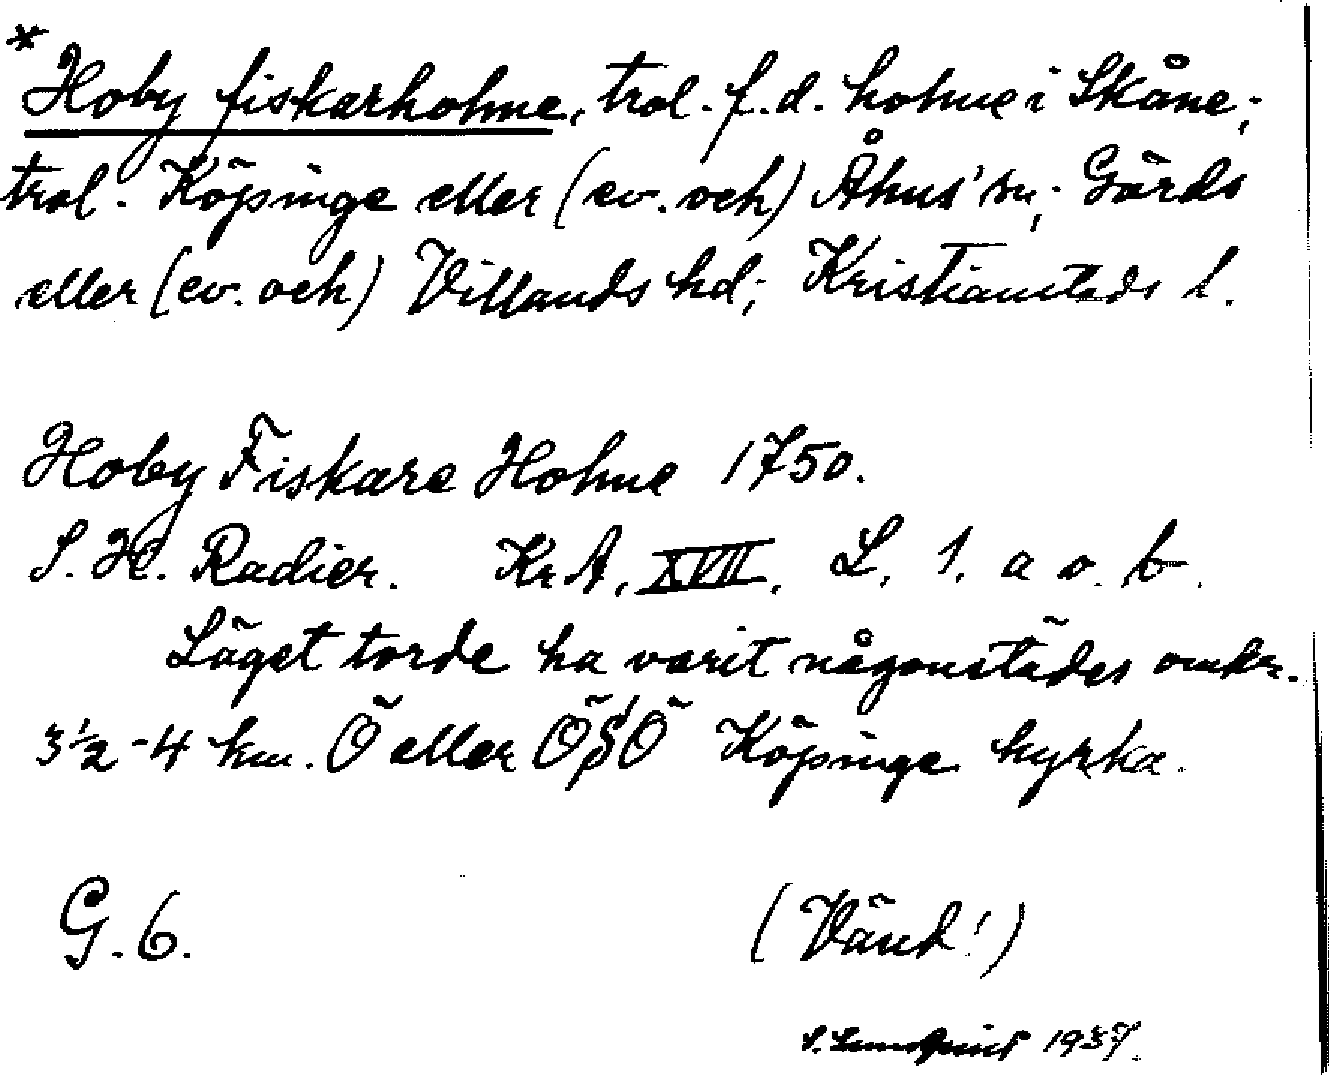 * Hoby fiskarholme, trol. f.d. holme i Skåne;
trol. Köpinge eller (ev. och) Åhus' sn; Gärds
eller (ev. och) Villands hd; Kristianstads l.
Hoby Fiskare Holme 1750.
S. H. Radier. Kr A, XVII, L, 1. a o. b.
Läget torde ha varit någonstädes omkr.
3½-4 km. Ö eller ÖSÖ Köpinge kyrka.
G. 6. (Vänd!)
S. Lundquist 1937.